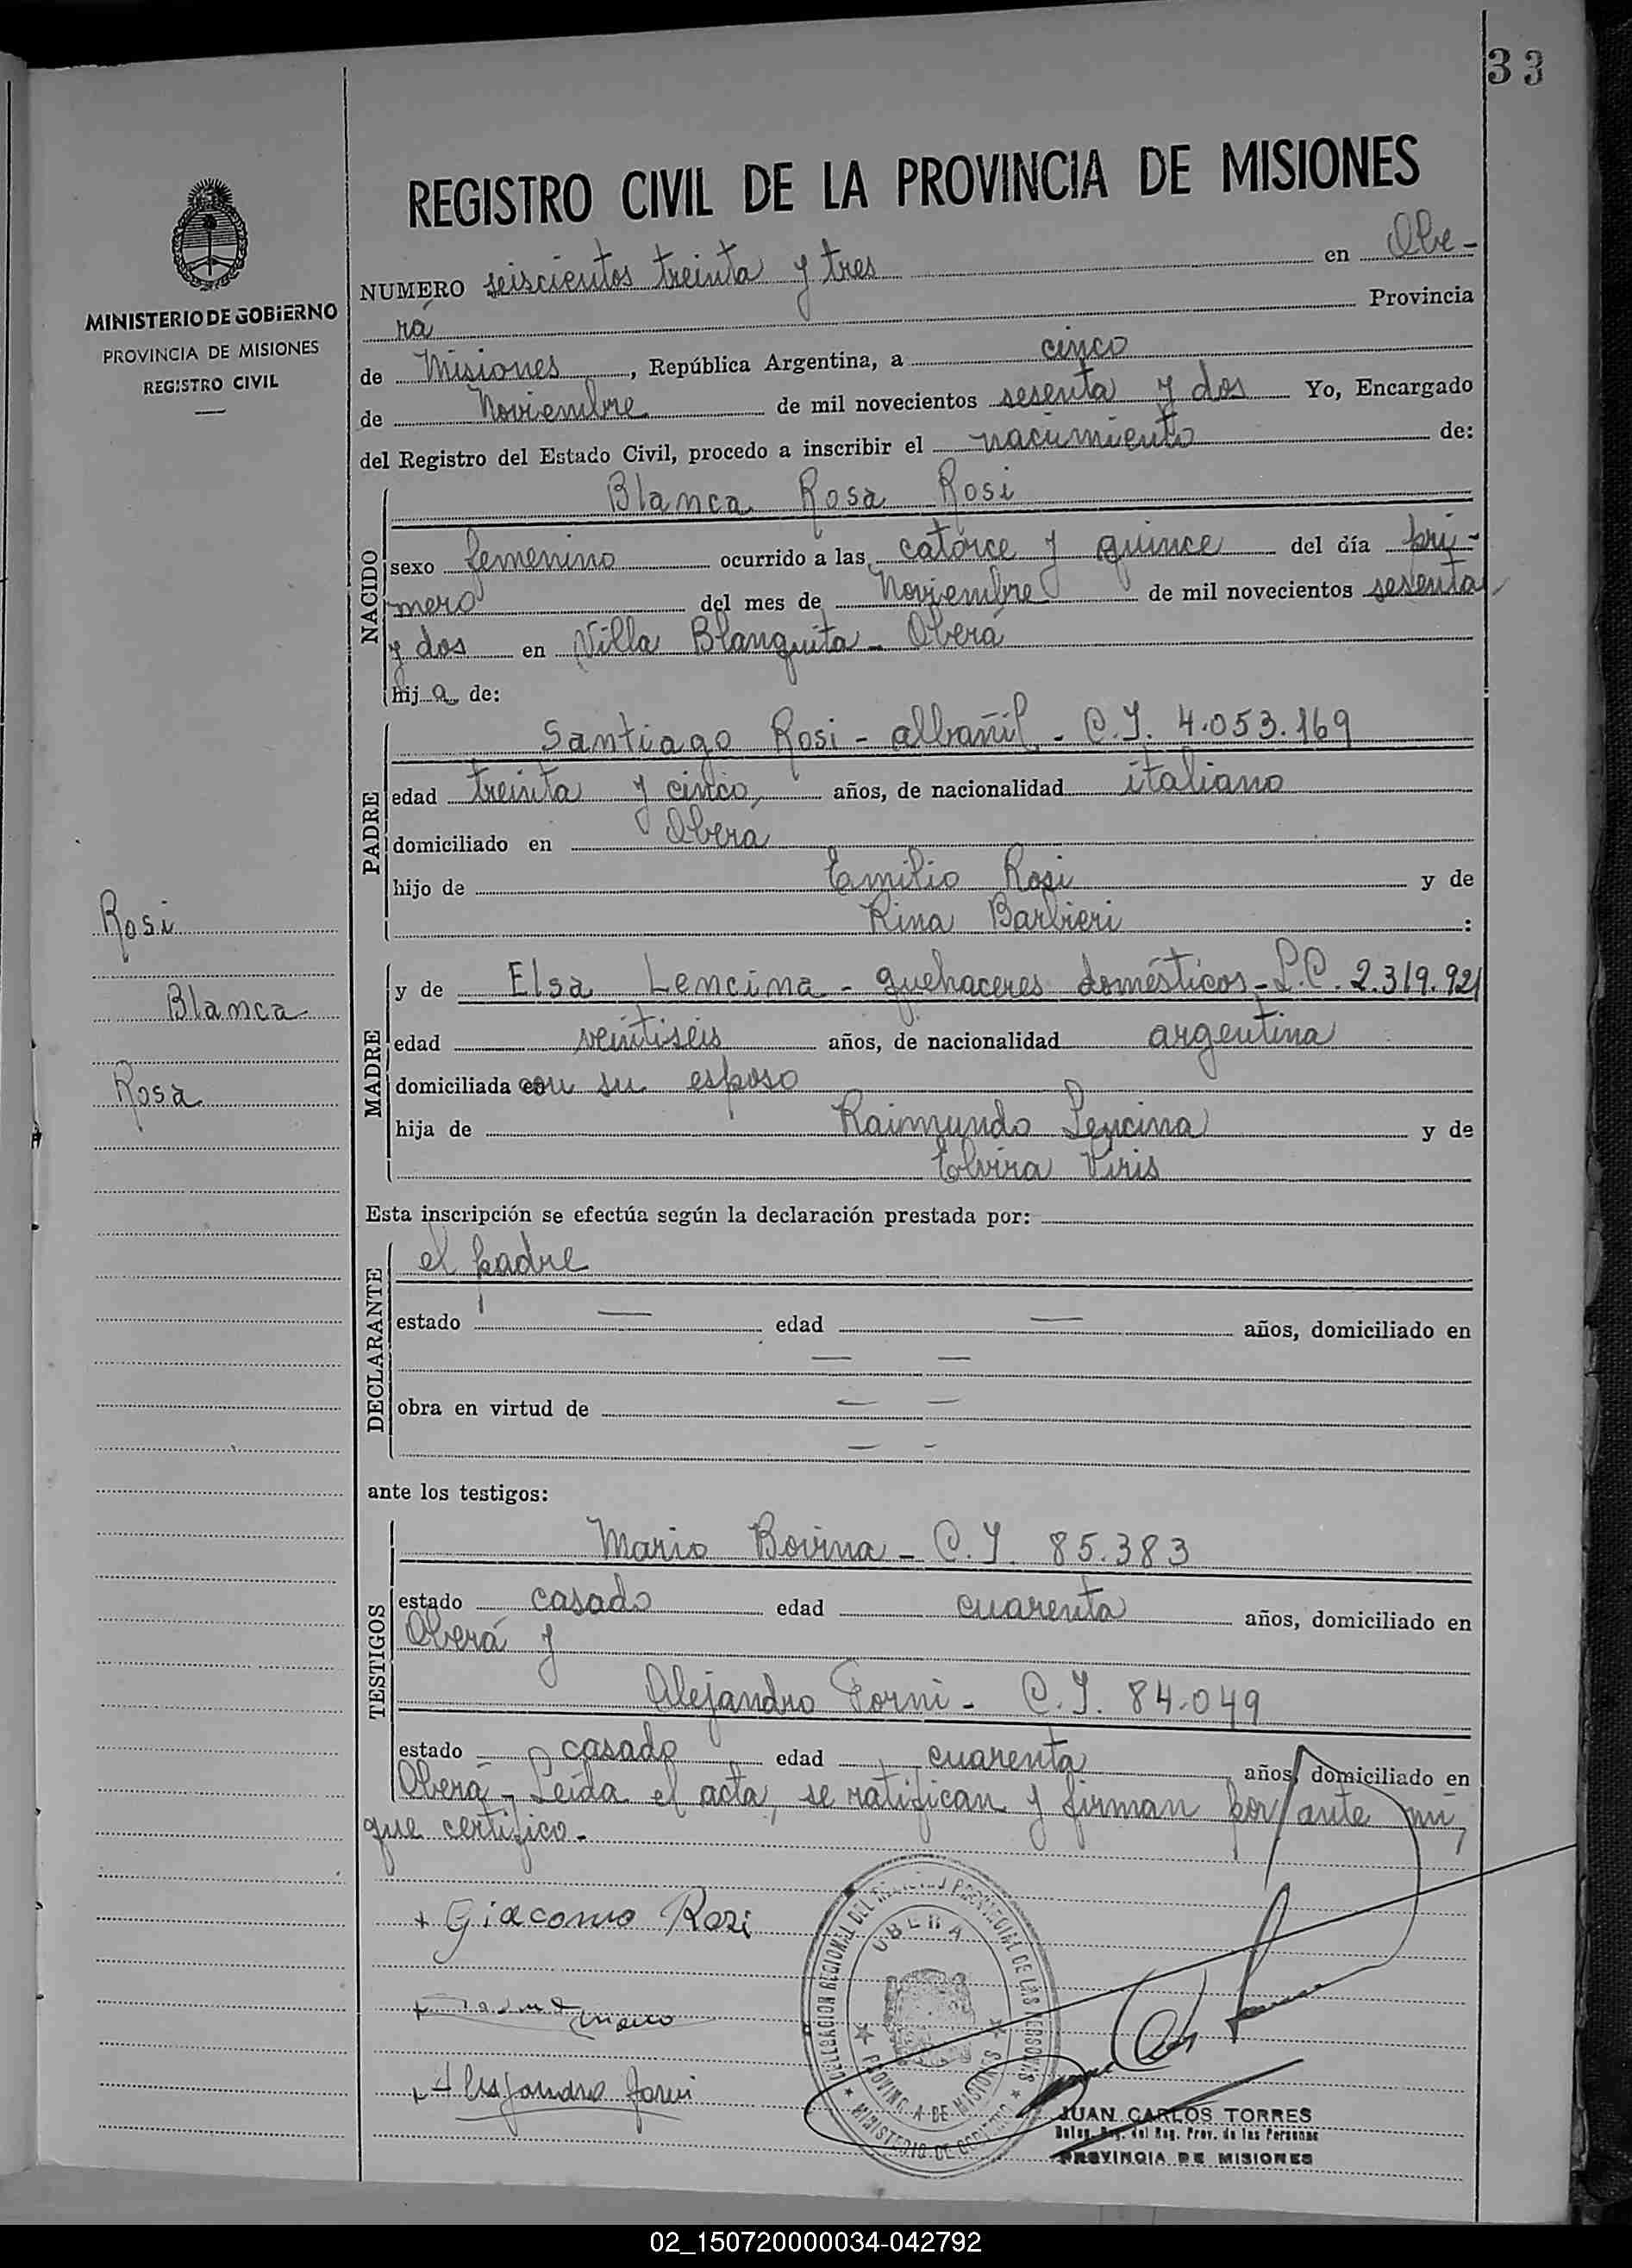 33
REGISTRO CIVIL DE LA PROVINCIA DE MISIONES
MINISTERIO DE GOBIERNO
PROVINCIA DE MISIONES
REGISTRO CIVIL
NUMERO seiscientos treinta y tres en Obe-
rá Provincia
de Misiones, República Argentina, a cinco
de Noviembre de mil novecientos sesenta y dos Yo, Encargado
del Registro del Estado Civil, procedo a inscribir el nacimiento de:
NACIDO
Blanca Rosa Rosi
sexo femenino ocurrido a las catorce y quince del día pri-
mero del mes de Noviembre de mil novecientos sesenta
y dos en Villa Blanquita - Oberá
hija de:
PADRE
Santiago Rosi - albañil - C.I. 4.053.169
edad treinta y cinco, años, de nacionalidad italiano
domiciliado en Oberá
hijo de Emilio Rosi y de
Rina Barbieri :
Rosi
Blanca
Rosa
MADRE
y de Elsa Lencina - quehaceres domésticos - L.C. 2.319.921
edad veintiseis años, de nacionalidad argentina
domiciliada con su esposo
hija de Raimundo Lencina y de
Elvira Viris
Esta inscripción se efectúa según la declaración prestada por:
DECLARANTE
el padre
estado — edad — años, domiciliado en
— —
obra en virtud de — —
— -
ante los testigos:
TESTIGOS
Mario Bovina - C.I. 85.383
estado casado edad cuarenta años, domiciliado en
Oberá y
Alejandro Forni - C.I. 84.049
estado casado edad cuarenta años, domiciliado en
Oberá - Leída el acta, se ratifican y firman por ante mi,
que certifico.-
+ Giacomo Rosi
+ Alejandro Forni
OBERA
PROVINCIA DE MISIONES
MINISTERIO DE GOBIERNO
JUAN CARLOS TORRES
Deleg. Reg. del Reg. Prov. de las Personas
PROVINCIA DE MISIONES
02_150720000034-042792